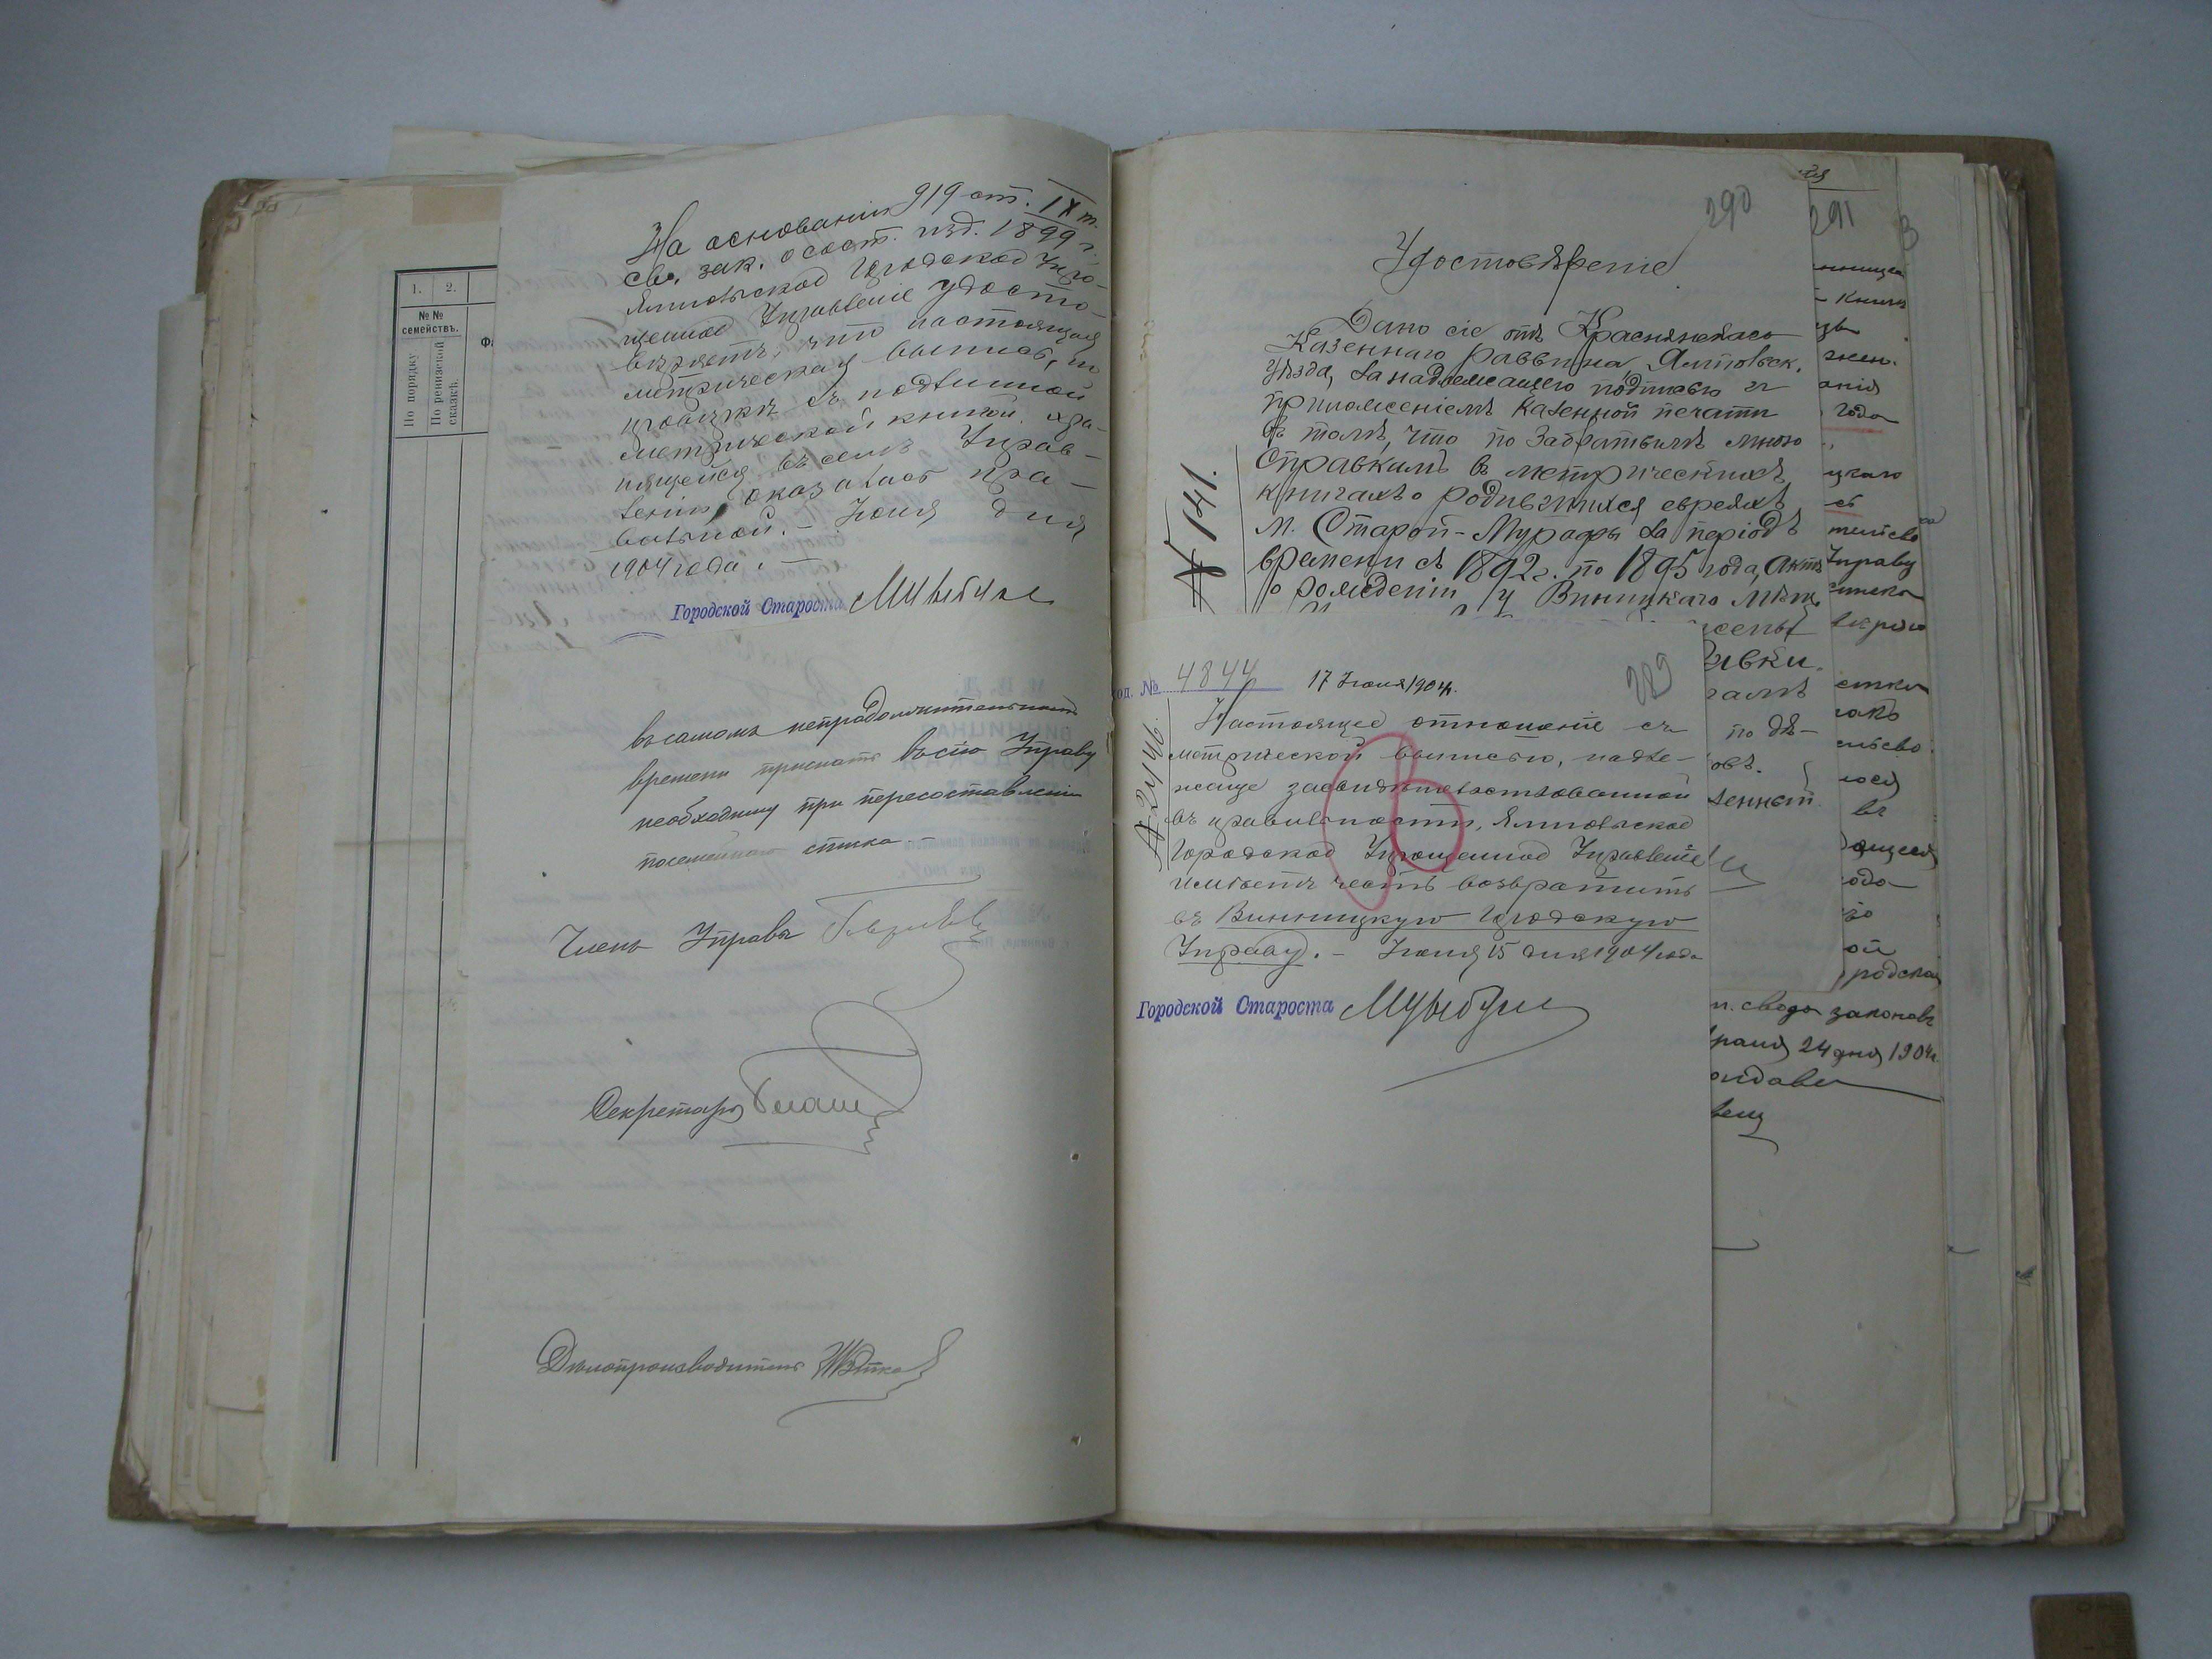 1.
2.
№№
семействъ.
По порядку
По ревизской
сказкѣ.
На основаніи 919 ст. IX т.
св. зак. о сост. изд. 1899 г.
Ямпольское Городское Упро-
щенное Управленіе удосто-
вѣряетъ, что настоящая
метрическая выпись, по
провѣркѣ съ подлинной
метрической книгой хра-
нящейся въ семъ Управ-
леніи, оказалась пра-
вильной. - Іюня дня
1904 года. -
Городской Староста
въ самомъ непродолжительномъ
времени прислать въ сію Управу
необходимую при пересоставленіи
посемейного списка. -
Членъ Управы
Секретарь
Дѣлопроизводитель
290
291
Удостовѣреніе
Дано сіе отъ Краснянскаго
Казеннаго раввина, Ямпольск.
уѣзда, за надлежащею подписью и
приложеніемъ казенной печати
въ томъ, что по забратымъ мною
справкамъ въ метрическихъ
книгахъ о родившихся евреяхъ
м. Старой-Мурафы за періодъ
времени съ 1892 г. по 1895 года, актъ
о рожденіи у Винницкаго мѣщ.
№ 141.
№ 4844
17 Іюня 1904 г.
289
Настоящее отношеніе съ
метрической выписью, надле-
жаще засвидѣтельствованной
въ правильности, Ямпольское
Городское Упрощенное Управленіе
имѣетъ честь возвратить
въ Винницкую Городскую
Управу. - Іюня 15 дня 1904 года
Городской Староста
по дѣ-
года
Управу
въ
родская
п. свода законовъ
24 дня 1904 г.